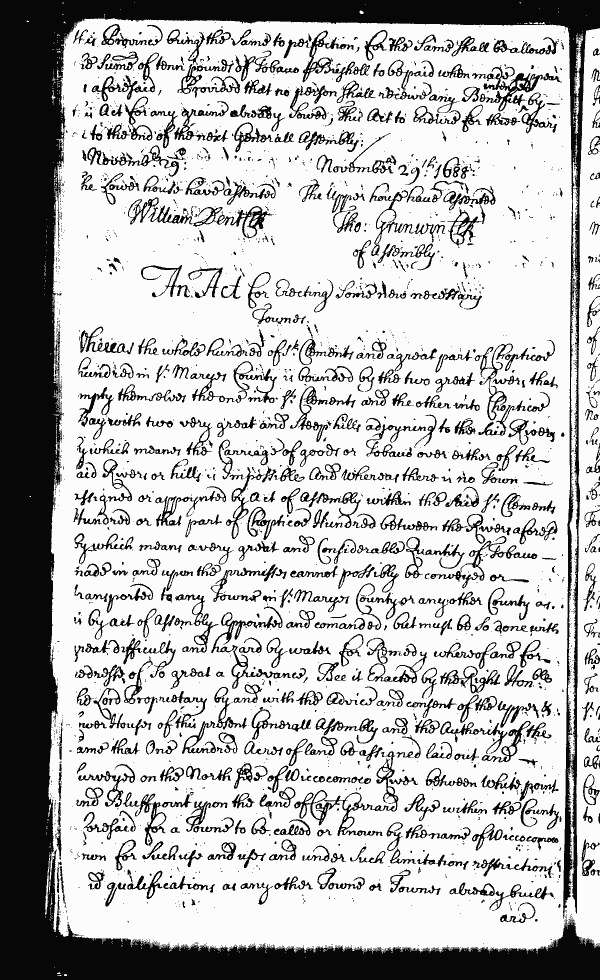 this Province bring the Same to perfection, for the Same shall be allowed
the Sume of tenn pounds of Tobaco ⅌ Bushell to be paid when made appear
aforesaid, Provided that no person shall receive any Benefitt by
intended
Act for any graine already Sowed, this Act to endure for three Years
to the end of the next Generall Assembly.
November 29th. November 29th. 1688.
The Lower house have assented The Upper house have Assented
William Dent Clk Tho: Grunwin Clk
of Assembly.
An Act for Erecting Some new necessary
Townes.
Whereas the whole hundred of St. Clements and a great part of Choptico
hundred in St. Maryes County is bounded by the two great Rivers that
empty themselves the one into St. Clements and the other into Choptico
Bay with two very great and Steep hills adjoyning to the said Rivers
by which means the Carriage of goods or Tobaco over either of the
said Rivers or hills is Impossible And whereas there is no Town
assigned or appoynted by Act of Assembly within the Said St. Clements
Hundred or that part of Choptico Hundred between the Rivers aforesd.
By which means a very great and Considerable Quantity of Tobaco
made in and upon the premisses cannot possibly be conveyed or
transported to any Towne in St. Maryes County or any other County as
is by Act of Assembly Appointed and comanded, but must be So done with
great difficulty and hazard by water for Remedy whereof and for
redresse of So great a Grievance, Bee it Enacted by the Right Honble
the Lord Proprietary by and with the Advice and consent of the upper &
lower Houses of this present Generall Assembly and the Authority of the
same that One hundred Acres of land be assigned laid out and
surveyed on the North side of Wiccocomoco River between White point
and Bluff point upon the land of Capt. Gerrard Slye within the County
aforesaid for a Towne to be called or known by the name of Wiccocomoco
Town for Such use and uses and under Such limitations restrictions
and qualifications as any other Towne or Townes already built
are.